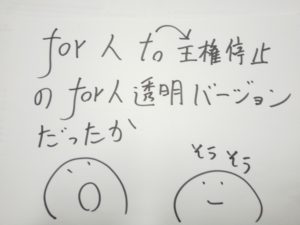 for 人 to 王権停止
の for人 透明バージョン
だったか
そう そう